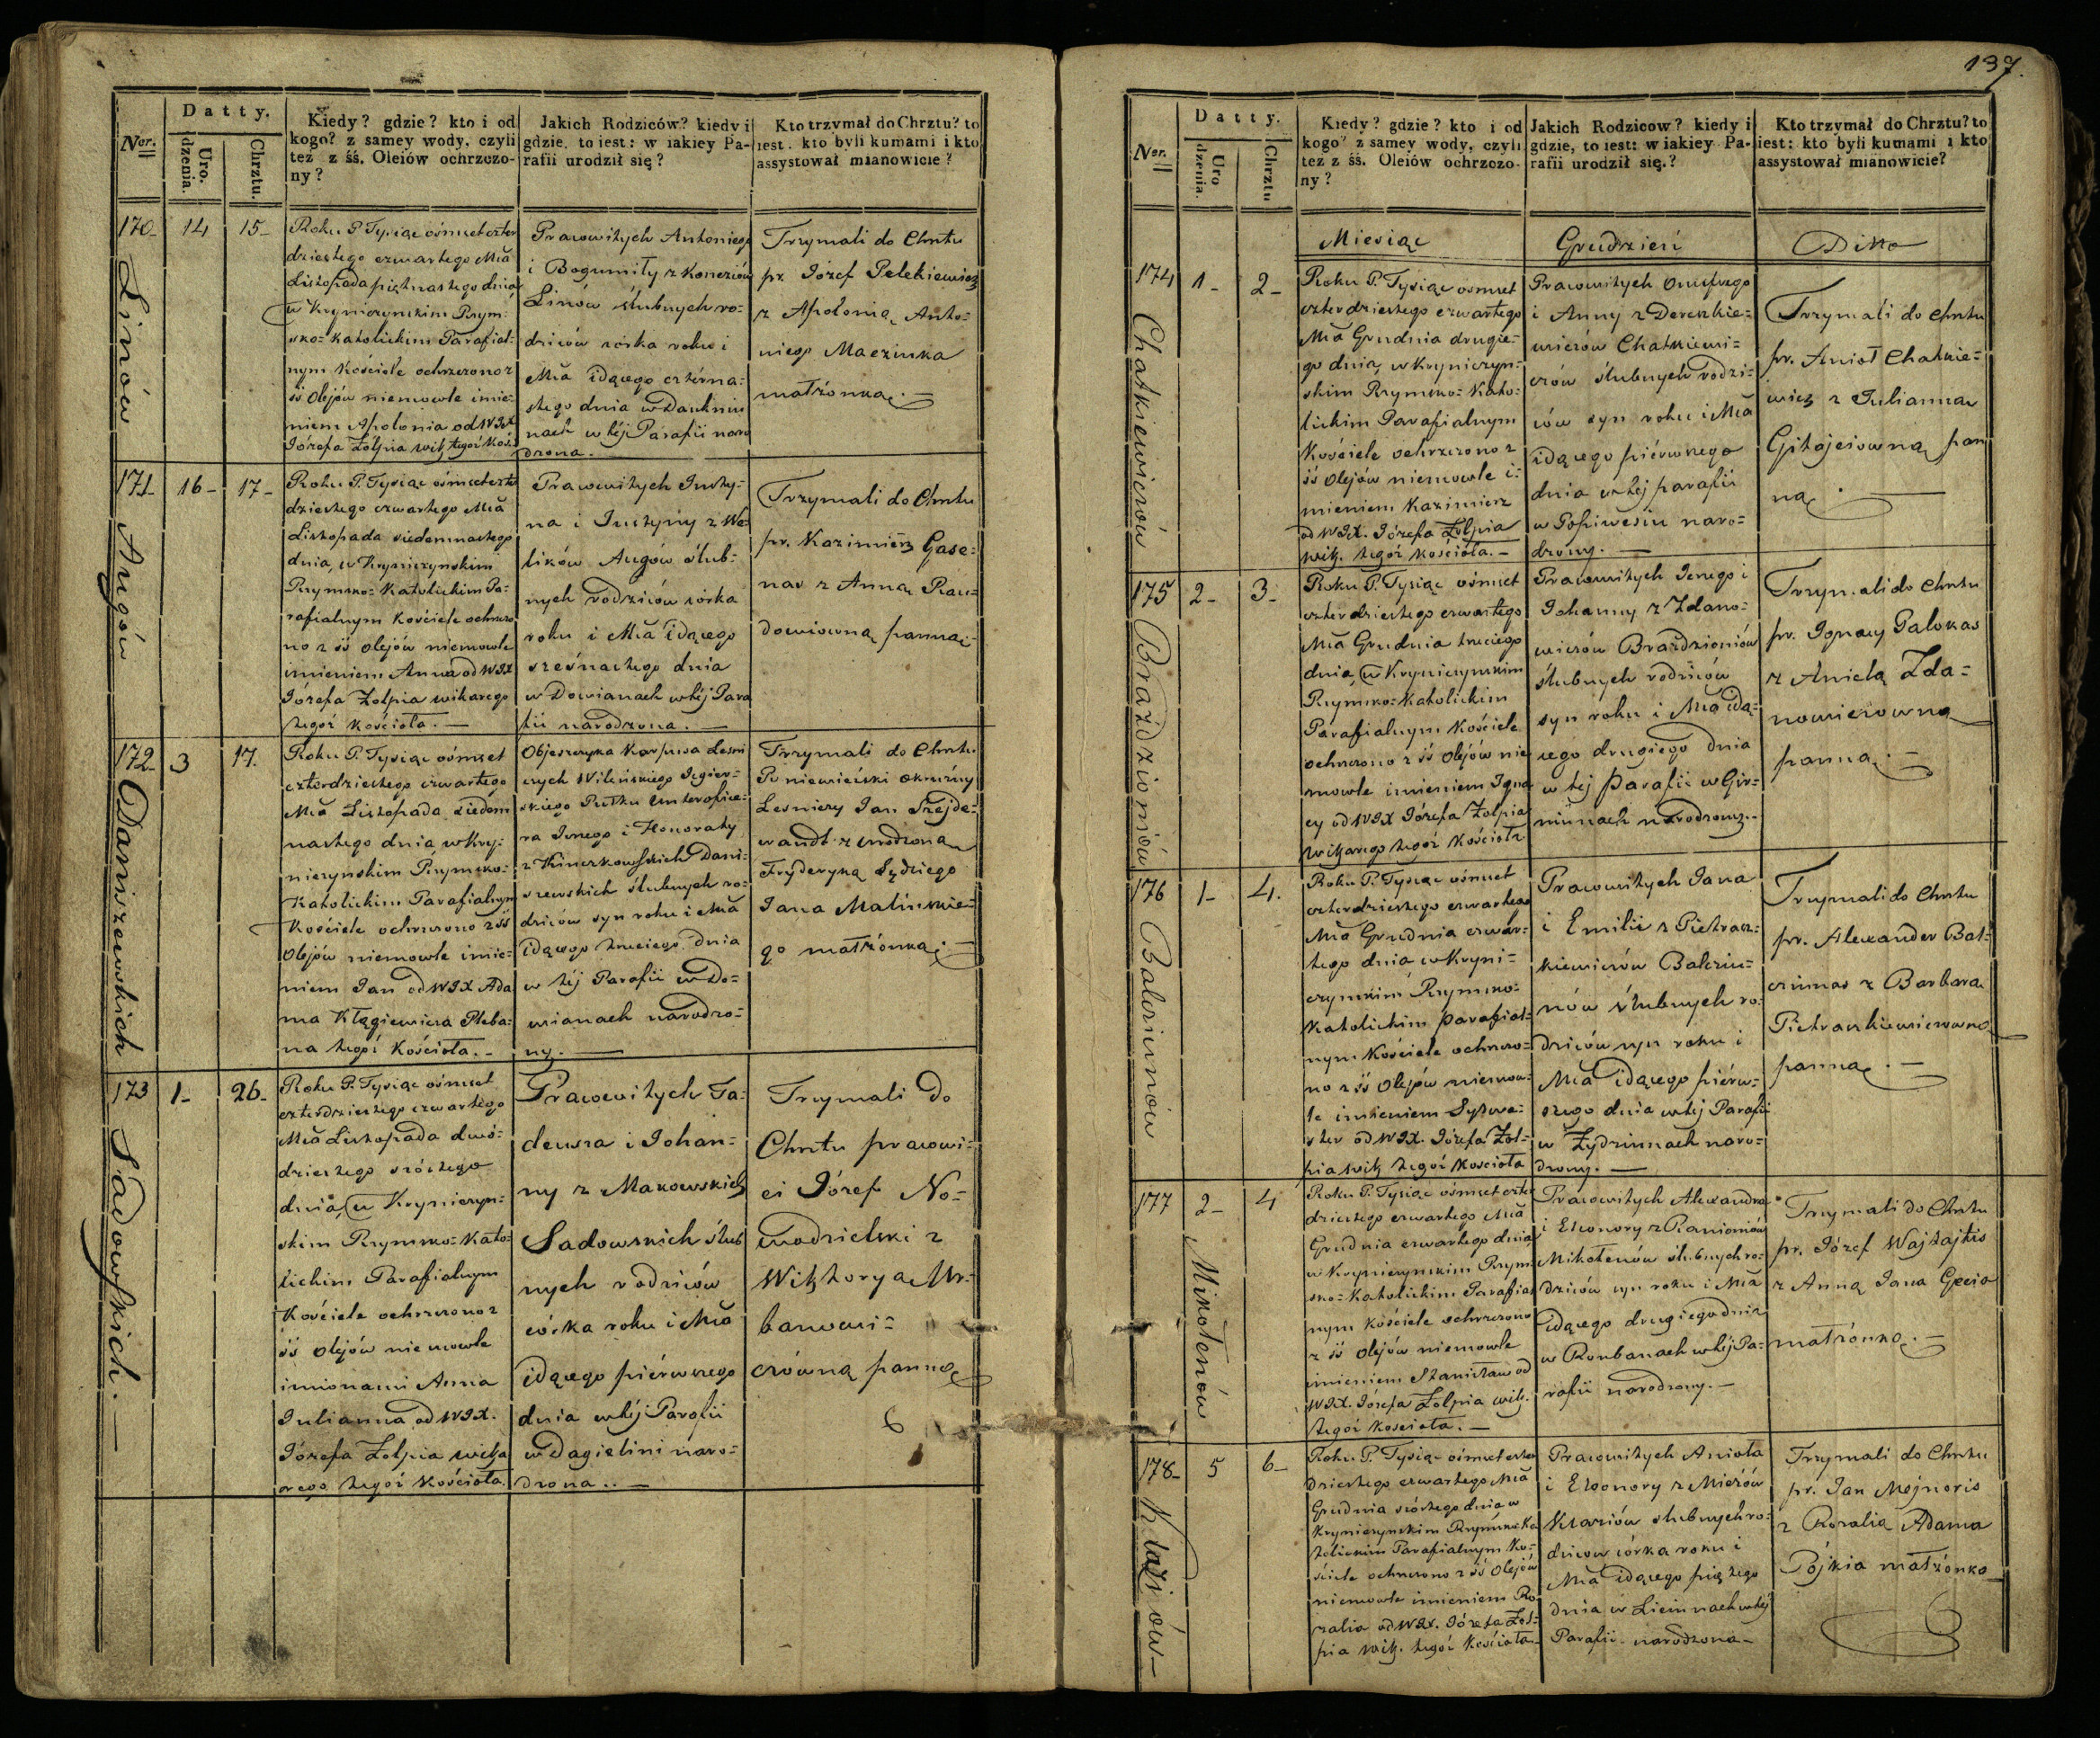 137.
Datty.
Ner.
Urodzenia.
Chrztu.
Kiedy? gdzie? kto i od
kogo? z samey wody, czyli
też z śś. Oleiów ochrzczo-
ny?
Jakich Rodziców? kiedy i
gdzie, to iest: w iakiey Pa-
rafii urodził się?
Kto trzymał do Chrztu? to
iest. kto byli kumami i kto
assystował mianowicie?
170- 14 15-
Linów
Roku P. Tysiąc ośmset czter
dziestego czwartego Mca
Listopada piętnastego dnia
w Kryniczynskim Rzym-
sko-Katolickim Parafial-
nym Kościele ochrzczono z
śś Olejów niemowle imie-
niem Apolonia od WJX
Józefa Żołpia wik. tegoż Kość.
Pracowitych Antoniego
i Bogumiły z Konczów
Linów ślubnych ro-
dziców córka roku i
Mca idącego czterna-
stego dnia w Daukniu
nach w téj Parafii naro
dzona.
Trzymali do Chrztu
pr. Józef Pelekiewicz
z Apolonią Anto-
niego Maczinka
małżonką.
171- 16- 17-
Augów
Roku P. Tysiąc ośmset czte
dziestego czwartego Mca
Listopada siedemnastego
dnia, w Kryniczynskim
Rzymsko-Katolickim Pa-
rafialnym Kościele ochrzczo
no z śś olejów niemowle
imieniem Anna od WJX
Józefa Żołpia wikarego
tegoż Kościoła.
Pracowitych Justy-
na i Justyny z We-
lików Augów ślub-
nych rodziców córka
roku i Mca idącego
szesnastego dnia
w Dowianach w téj Para
fii narodzona.
Trzymali do Chrztu
pr. Kazimierz Gase-
nas z Anną Rau-
dowiowną panną
172- 3 17.
Daniszewskich
Roku P. Tysiąc ośmset
czterdziestego czwartego
Mca Listopada siedém
nastego dnia, w Kry-
niczynskim Rzymsko-
Katolickim Parafialnym
Kościele ochrzczono z śś
Olejów niemowle imie-
niem Jan od WJX Ada
ma Kłągiewicza Pleba-
na tegoż Kościoła.
Objeszczyka Karpusa Leśni
czych Wileńskiego Jegier-
skiego Pułku Unterofice-
ra Jerzego i Honoraty
z Kinerkowskich Dani-
szewskich ślubnych ro-
dziców syn roku i Mca
idącego trzeciego dnia
w téj Parafii w Do-
wianach narodzo-
ny.
Trzymali do Chrztu
Poniewieżski okrężny
Leśniczy Jan Szejde-
wandt z urodzoną
Fryderyką Sędziego
Jana Malinskie-
go małżonką.
173 1- 26-
Sadowskich.
Roku P. Tysiąc ośmset
czterdziestego czwartego
Mca Listopada dwó-
dziestego szóstego
dnia, w Kryniczyn-
skim Rzymsko-Kato-
lickim Parafialnym
Kościele ochrzczono z
śś Olejów niemowle
imionami Anna
Julianna od WJX.
Józefa Żołpia wika
rego tegoż Kościoła.
Pracowitych Ta-
deusza i Johan-
ny z Makowskich
Sadowskich ślub
nych rodziców
córka roku i Mca
idącego pierwszego
dnia w téj Parafii
w Dagielini naro-
dzona.
Trzymali do
Chrztu pracowi-
ci Józef No-
wodzielski z
Wiktoryą Ur-
banowi-
czówną panną
Datty.
Ner.
Urodzenia.
Chrztu
Kiedy? gdzie? kto i od
kogo? z samey wody, czyli
też z śś. Oleiów ochrzczo-
ny?
Jakich Rodzicow? kiedy i
gdzie, to iest: w iakiey Pa-
rafii urodził się.?
Kto trzymał do Chrztu? to
iest: kto byli kumami i kto
assystował mianowicie?
Miesiąc Grudzień Ditto
174 1- 2-
Chatkiewiczów
Roku P. Tysiąc ośmset
czterdziestego czwartego
Mca Grudnia drugie-
go dnia, w Kryniczyn-
skim Rzymsko-Kato-
lickim Parafialnym
Kościele ochrzczono z
śś Olejów niemowle i-
mieniem Kazimierz
od WJX. Józefa Żołpia
wik. tegoż Kościoła.
Pracowitych Onufrego
i Anny z Dereszkie-
wiczów Chatkiewi-
czów ślubnych rodzi-
ców syn roku i Mca
idącego piérwszego
dnia w téj parafii
w Popiwesiu naro-
dzony.
Trzymali do Chrztu
pr. Anioł Chatkie-
wicz z Julianną
Gitojciowną pan
ną.
175 2- 3-
Braździoniów
Roku P. Tysiąc ośmset
czterdziestego czwartego
Mca Grudnia trzeciego
dnia, w Krynicznynskim
Rzymsko-Katolickim
Parafialnym Kościele
ochrzczono z śś Olejów nie
mowle imieniem Igna
cy od WJX Józefa Żołpia
wikarego tegoż Kościoła
Pracowitych Jerzego i
Johanny z Zdano-
wiczów Braździoniów
ślubnych rodziców
syn roku i Mca idą-
cego drugiego dnia
w téj Parafii w Gir-
niunach narodzony.
Trzymali do Chrztu
pr. Ignacy Galokas
z Anielą Zda-
nowiczowną
panną.
176 1- 4.
Balcziunów
Roku P. Tysiąc ośmset
czterdziestego czwartego
Mca Grudnia czwar-
tego dnia w Kryni-
czynskim Rzymsko-
Katolickim Parafial-
nym Kościele ochrzczo-
no z śś Olejów niemow-
le imieniem Sylwe-
ster od WJX. Józefa Żoł-
pia wik tegoż Kościoła
Pracowitych Jana
i Emilii z Pietrasz-
kiewiczów Balcziu-
nów ślubnych ro-
dziców syn roku i
Mca idącego piérw-
szego dnia w téj Parafii
w Żydziunach naro-
dzony.
Trzymali do Chrztu
pr. Alexander Bal-
cziunas z Barbarą
Pietraszkiewiczowną
panną.
177 2- 4
Mikołenów
Roku P. Tysiąc ośmset czter
dziestego czwartego Mca
Grudnia czwartego dnia,
w Krynicznynskim Rzym
sko-Katolickim Parafial
nym Kościele ochrzczono
z śś Olejów niemowle
imieniem Stanisław od
WJX. Józefa Żołpia wik.
tegoż Kościoła.
Pracowitych Alexandra
i Eleonory z Ranioniów
Mikołenów ślubnych ro-
dziców syn roku i Mca
idącego drugiego dnia
w Roubanach w téj Pa-
rafii narodzony.
Trzymali do Chrztu
pr. Józef Wajtajtis
z Anną Jana Gecia
małżonką.
178- 5 6-
Klaziów
Roku P. Tysiąc ośmset czter
dziestego czwartego Mca
Grudnia szóstego dnia w
Krynicznynskim Rzymsko Ka
tolickim Parafialnym Ko-
ściele ochrzczono z śś Olejów
niemowle imieniem Ro
zalia od WJX. Józefa Żoł-
pia wik. tegoż Kościoła
Pracowitych Anioła
i Eleonory z Mieżów
Klaziów ślubnych ro-
dziców córka roku i
Mca idącego piątego
dnia w Liciunach w téj
Parafii narodzona
Trzymali do Chrztu
pr. Jan Mejnoris
z Rozalią Adama
Pójkia małżonką